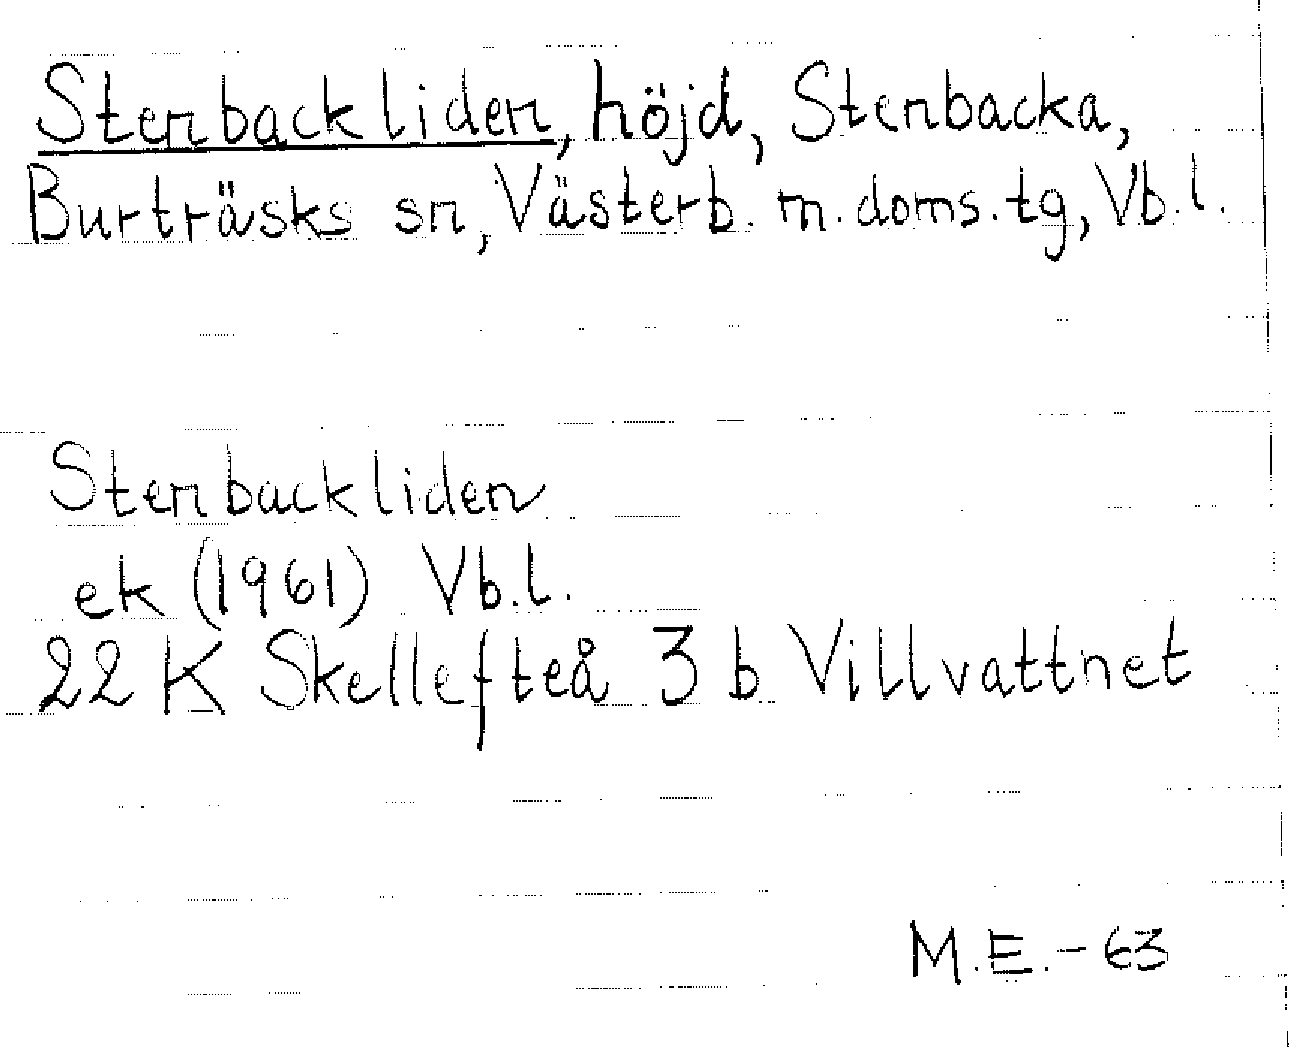 Stenbackliden, höjd, Stenbacka,
Burträsks sn, Västerb. m. doms. tg, Vb. l.
Stenbackliden
ek (1961) Vb. l.
22 K Skellefteå 3 b Villvattnet
M.E. - 63